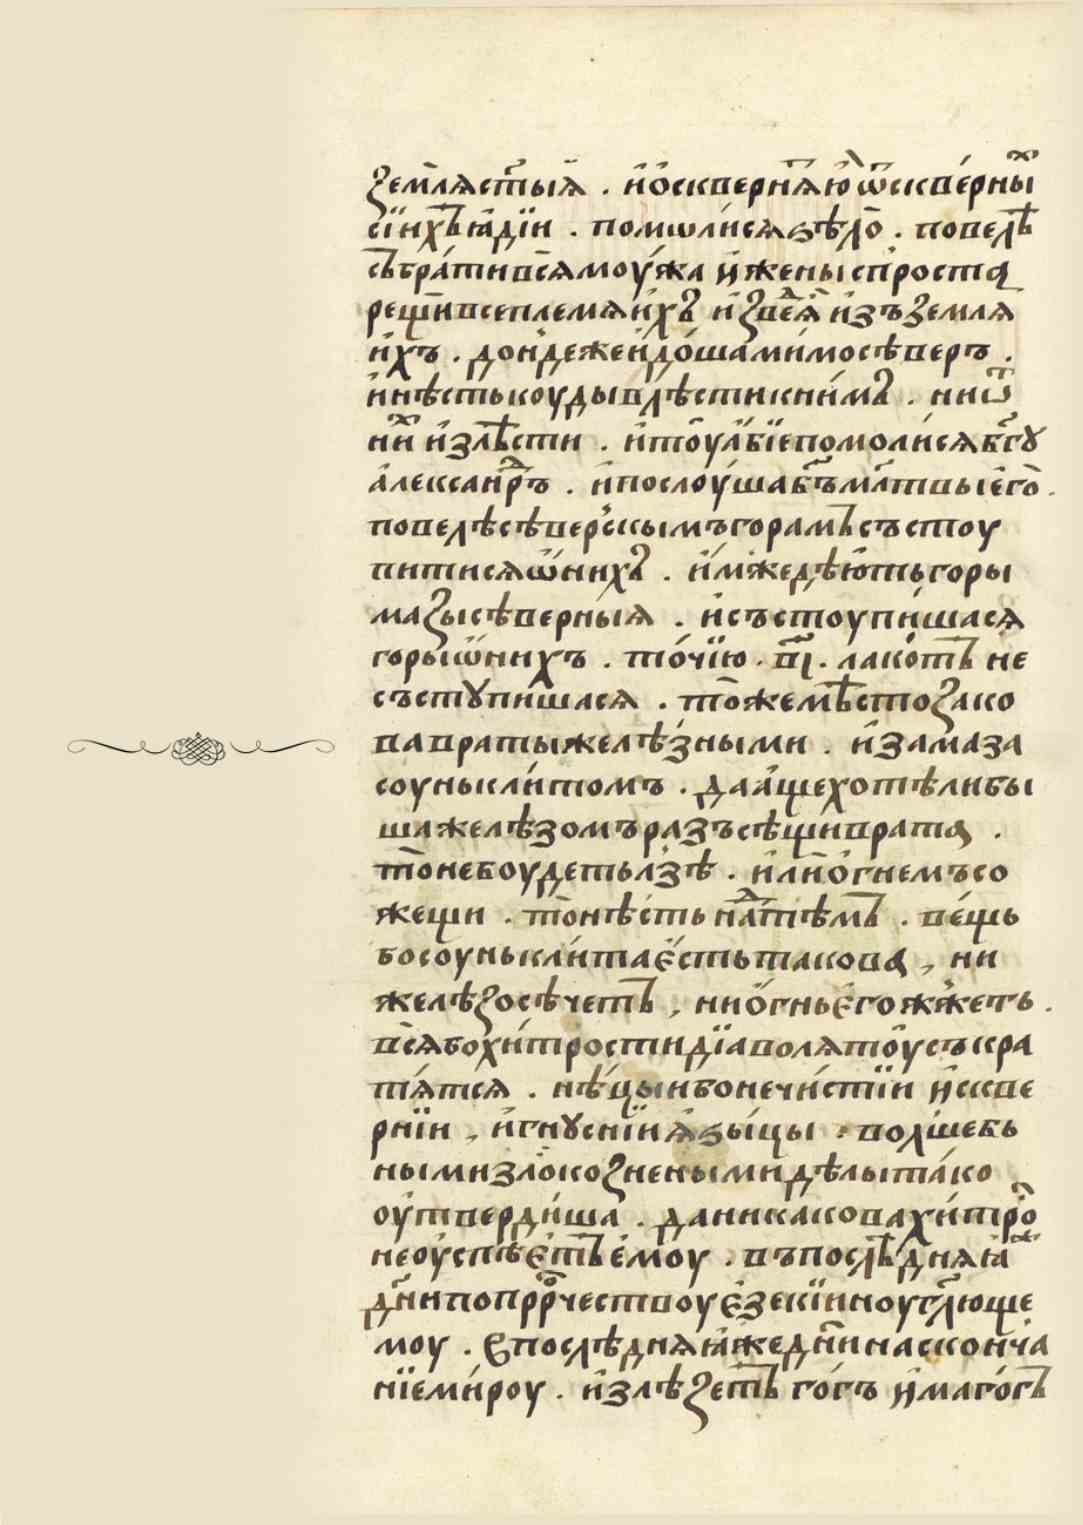 землѧ ст҃ыѧ . и҆ ѡ҆скверни́т ю҆ ѿ скве́рных
сїих̾ ꙗ҆ди́и . помоли́сѧ ѕѣло̀ . повелѣ̀
събра́ти всѧ̀ моу́жа и҆ жены̀ спро́ста
рещѝ все племѧ и҆хъ и҆зведе́ѧ и҆зъ землѧ
и҆хъ . до́ндеже и҆до́ша ми́мо сѣверъ .
и҆ нѣсть коуды̀ влѣсти к ни́мъ . ни ѿ
ни́х и҆злѣсти . и҆ тоу̀ а҆́бїе помоли́сѧ бг҃ꙋ
а҆леѯа́ндръ . и҆ послоу́ша бг҃ъ мл҃твы є҆го̀ .
повелѣ̀ сѣве́рскымъ гора́мъ състоу
пи́тисѧ ѡ҆ ни́хъ . и҆́мже дѣ́ють горы
мазы̀ сѣверныѧ . и҆ състоупи́шасѧ
горы ѡ҆ нихъ . то́чїю . в҃і . лако́тъ не
състꙋпи́шасѧ . то́же мѣсто зако
ва враты̀ желѣзными . и҆ зама́за
соунькли́томъ . да а҆́ще хотѣли бы
ша желѣзомъ разъсѣщѝ врата̀ .
то̀ не боудеть лзѣ̀ . и҆лѝ о҆гнемъ со
жещи . то̀ нѣсть на́д тѣмъ . ве́щь
бо соунькли́та є҆́сть такова̀ , ни
желѣзо сѣчетъ , ни о҆́гнь є҆го̀ жже́ть .
всѧ̀ бо хи́трости дїаволѧ тоу̀ съкра
тѧ́тсѧ . нѣ́цыи бо нечи́стїи и҆ скве
рнїи , и҆ гнꙋснїи ѧ҆зы́цы . волше́бь
ными злоко́знеными дѣлы та́ко
оу҆тверди́ша . да никакова хи́тро
не оу҆спѣ́етъ є҆моу . въ послѣ́днѧѧ҆ же
дн҃и по прⷪ҇рчествоу є҆зекїи́ноу гл҃юще
моу . є҆ послѣ́днѧѧ҆ же дн҃и на сконча́
нїе ми́роу . и҆злѣзетъ го́гъ и҆ маго́гъ